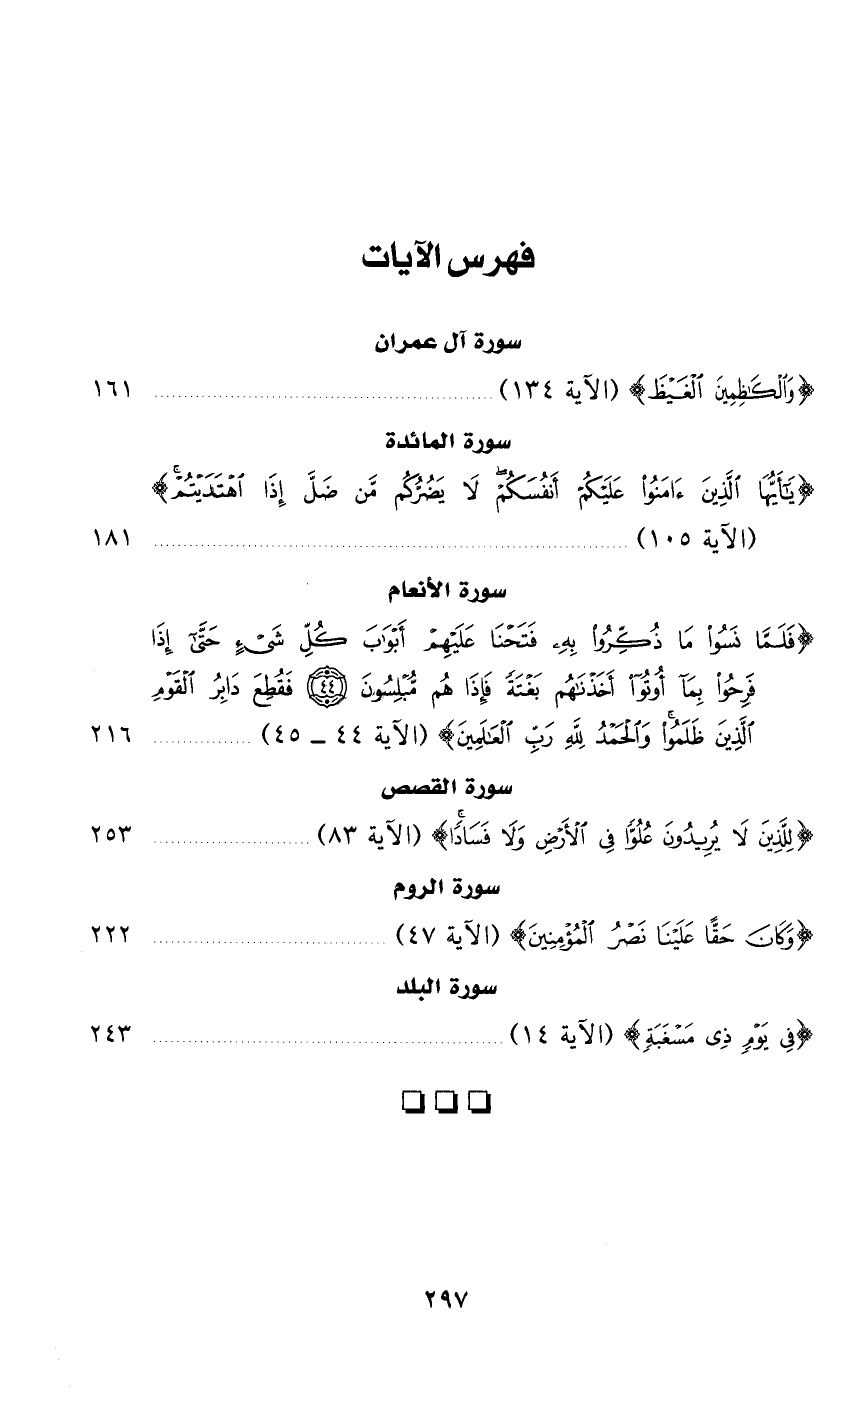 فهرس الآيات
سورة آل عمران
﴿وَٱلْكَٰظِمِينَ ٱلْغَيْظَ﴾ (الآية ١٣٤) ........ ١٦١
سورة المائدة
﴿يَٰٓأَيُّهَا ٱلَّذِينَ ءَامَنُوا۟ عَلَيْكُمْ أَنفُسَكُمْ ۖ لَا يَضُرُّكُم مَّن ضَلَّ إِذَا ٱهْتَدَيْتُمْ ۚ﴾
(الآية ١٠٥) ........ ١٨١
سورة الأنعام
﴿فَلَمَّا نَسُوا۟ مَا ذُكِّرُوا۟ بِهِۦ فَتَحْنَا عَلَيْهِمْ أَبْوَٰبَ كُلِّ شَىْءٍ حَتَّىٰٓ إِذَا
فَرِحُوا۟ بِمَآ أُوتُوٓا۟ أَخَذْنَٰهُم بَغْتَةً فَإِذَا هُم مُّبْلِسُونَ ٤٤ فَقُطِعَ دَابِرُ ٱلْقَوْمِ
ٱلَّذِينَ ظَلَمُوا۟ ۚ وَٱلْحَمْدُ لِلَّهِ رَبِّ ٱلْعَٰلَمِينَ﴾ (الآية ٤٤ ـ ٤٥) ........ ٢١٦
سورة القصص
﴿لِلَّذِينَ لَا يُرِيدُونَ عُلُوًّا فِى ٱلْأَرْضِ وَلَا فَسَادًا ۚ﴾ (الآية ٨٣) ........ ٢٥٣
سورة الروم
﴿وَكَانَ حَقًّا عَلَيْنَا نَصْرُ ٱلْمُؤْمِنِينَ﴾ (الآية ٤٧) ........ ٢٢٢
سورة البلد
﴿فِى يَوْمٍ ذِى مَسْغَبَةٍ﴾ (الآية ١٤) ........ ٢٤٣
٢٩٧